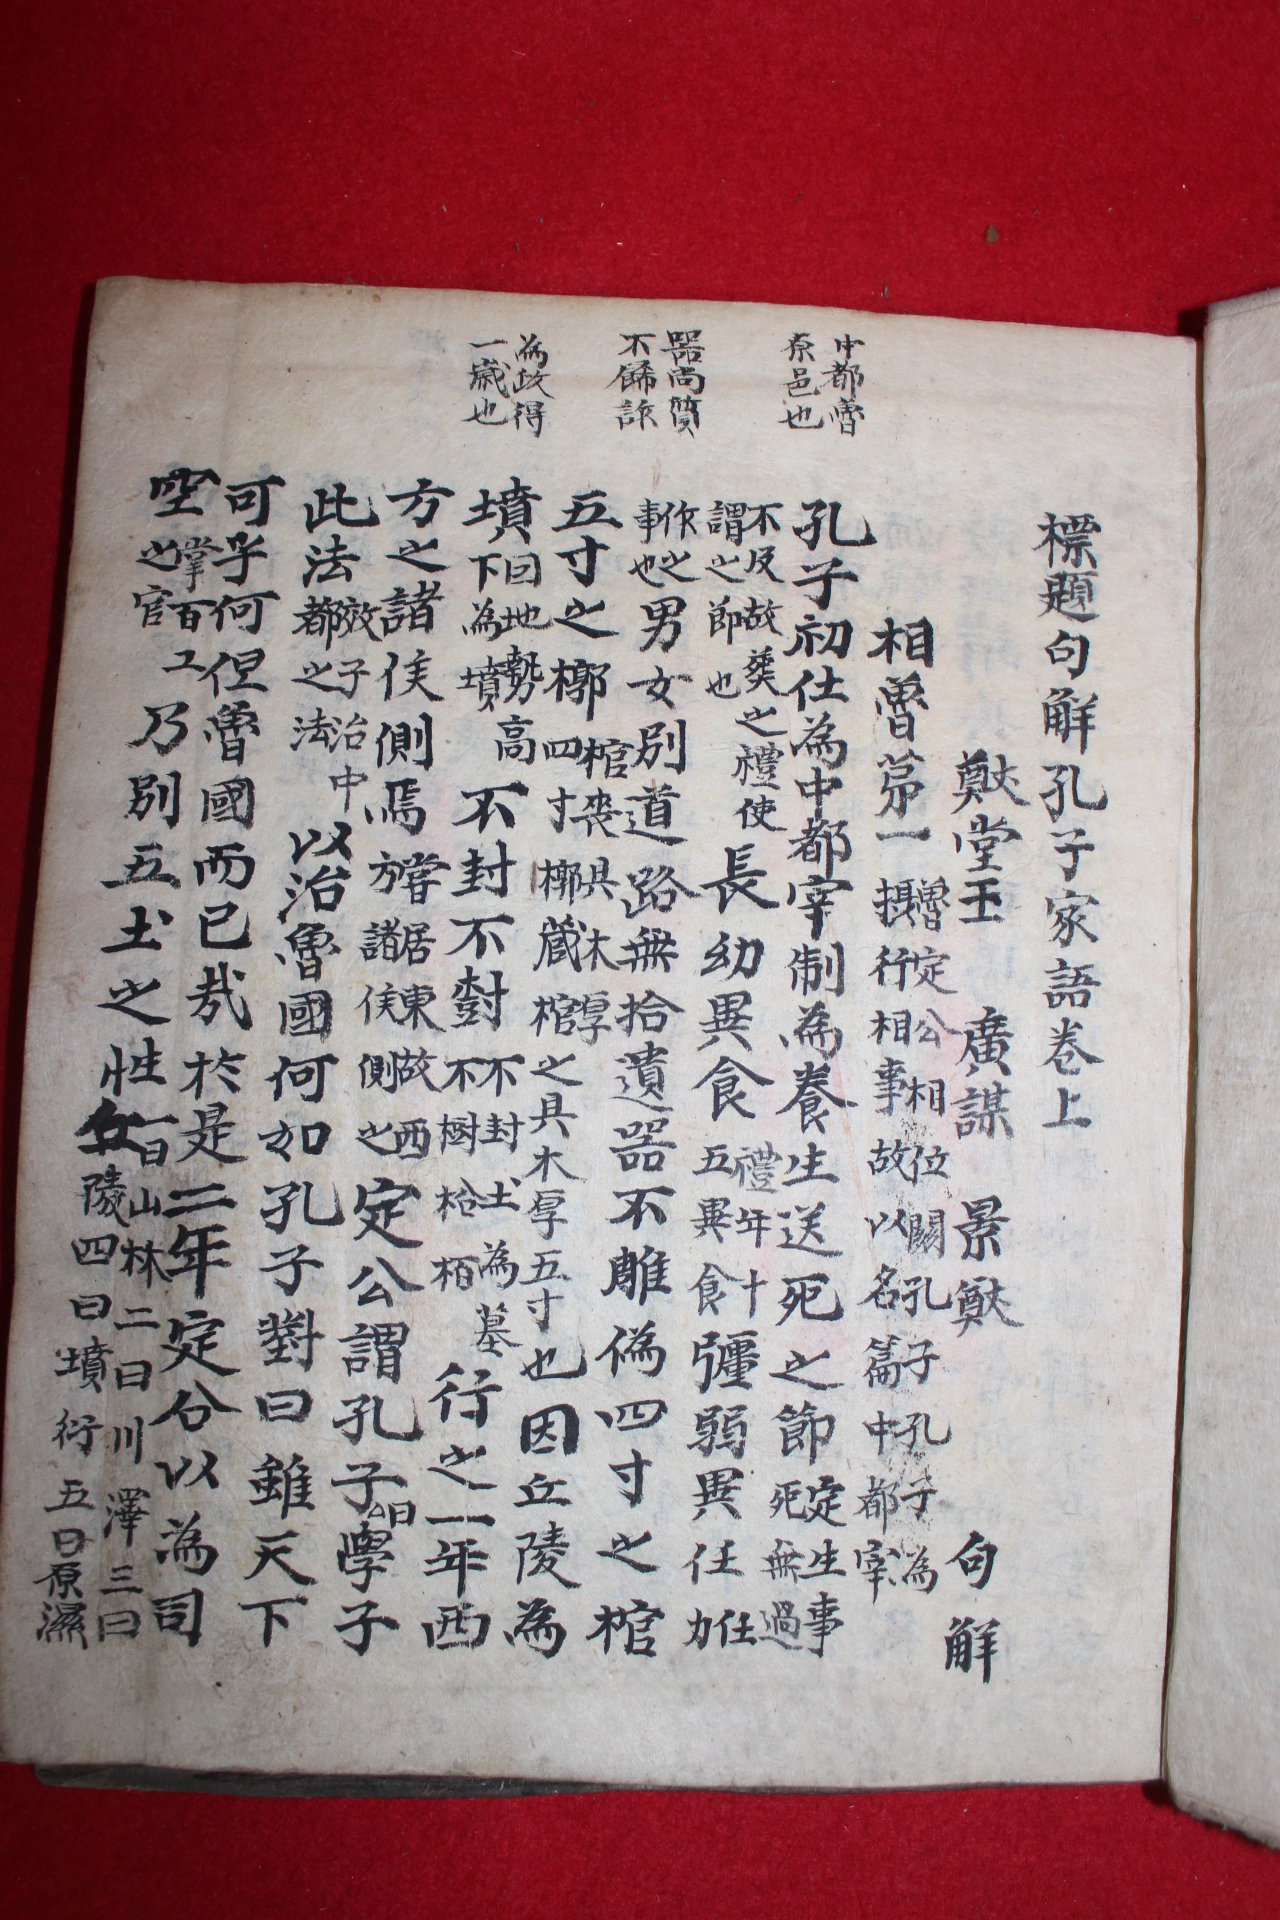 中都魯
原邑也
器尚質
不餙詐
為政得
一歲也
標題句解孔子家語卷上
猷堂王 廣謀 景猷 句解
相魯第一 魯定公相位闕孔子孔子為
攝行相事故以名篇中都宰
孔子初仕為中都宰制為養生送死之節 定生事
死無過
不及故葬之禮使
謂之節也
長幼異食 禮年十
五異食 彊弱異任 任
力
作之
事也 男女別道路無拾遺器不雕偽四寸之棺
五寸之槨 棺喪具木厚
四寸槨藏棺之具木厚五寸也 因丘陵為
墳 曰地勢高
下為墳 不封不樹 不封土為墓
不樹松栢 行之一年西
方之諸侯側焉 嘗居東故西
方諸侯側之 定公謂孔子 公曰 學子
此法 效子治中
都之法 以治魯國何如孔子對曰雖天下
可乎何但魯國而已哉於是二年定公以為司
空 掌百工
之官 乃別五土之性 一曰山林二曰川澤三曰
丘陵四曰墳衍五曰原濕